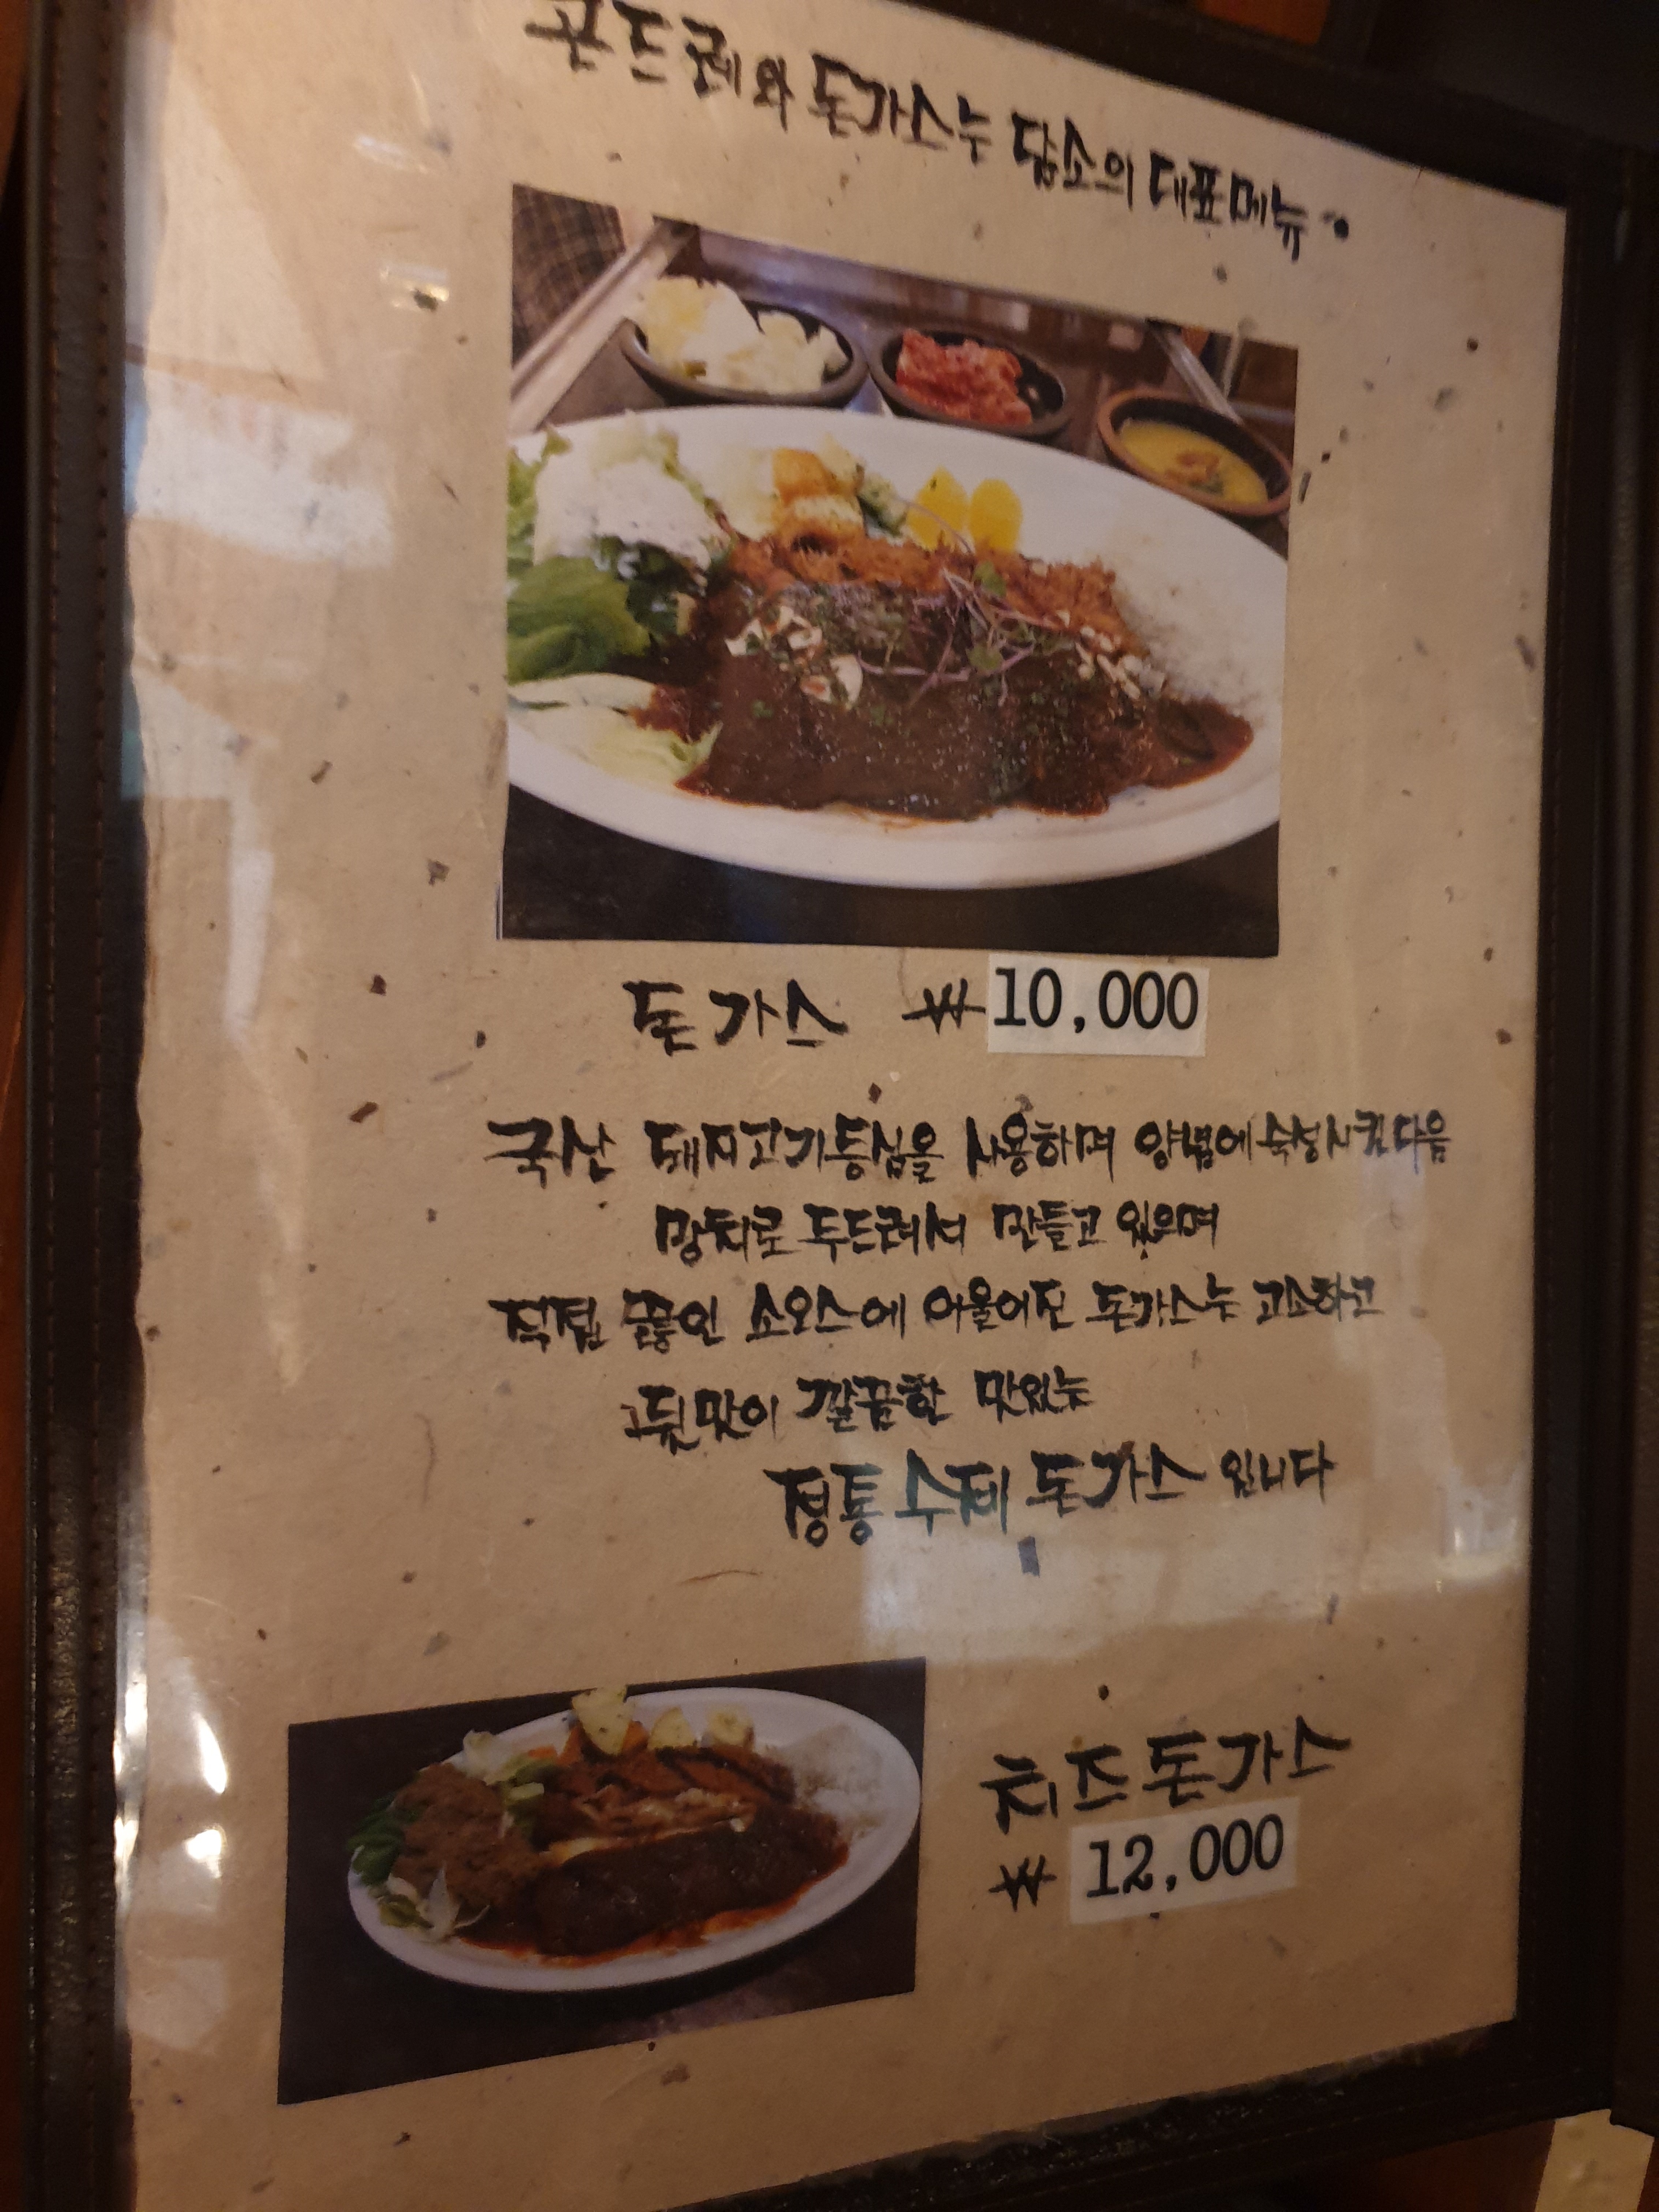 곤드레와 돈가스는 담소의 대표메뉴
돈가스 ₩10,000
국산 돼지고기등심을 사용하며 양념에 숙성시킨다음
망치로 두드려서 만들고 있으며
직접 끓인 소오스에 어울어진 돈가스는 고소하고
뒷맛이 깔끔한 맛있는
정통 수제 돈가스 입니다
치즈돈가스
₩ 12,000